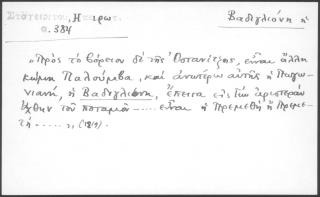 Ἤπειρω.
σ. 384
Βαδιγλιόνη ἡ
"Πρὸς τὸ βόρειον δὲ τῆς Ὀστανίτζης, εἶναι ἄλλη
κώμη Παλούμβα, καὶ ἀνωτέρω αὐτῆς ἡ Πωγω-
νιανή, ἡ Βαδιγλιόνη, ἔπειτα εἰς τὴν ἀριστερὰν
ὄχθην τοῦ ποταμοῦ ..... εἶναι ἡ Πρεμεθή ἢ Πρεμε-
τή ..... ", (1819).